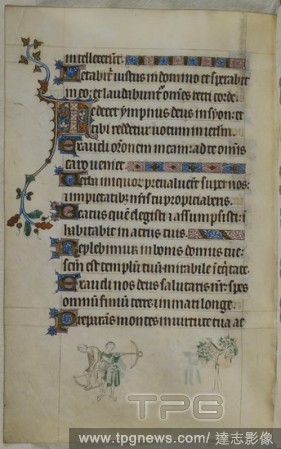 intellexerunt.
Letabitur iustus in domino et sperabit
in eo: et laudabuntur omnes recti corde.
Te decet ympnus deus in syon: et
tibi reddetur uotum in ierlm.
Exaudi oronem meam: ad te omnis
caro ueniet.
Uerba iniquor preualuerunt super nos:
impietatib; nris tu propiciaberis.
Beatus quē elegisti ⁊ assumpsisti:
inhabitabit in atriis tuis.
Replebimur in bonis domus tue:
scm̄ est templū tuū mirabile ī equitate.
Exaudi nos deus salutaris nr: spes
omnū finiū terre: ⁊ in mari longe.
Preparans montes in uirtute tua ac
TPG
www.tpgnews.com/ 達志影像